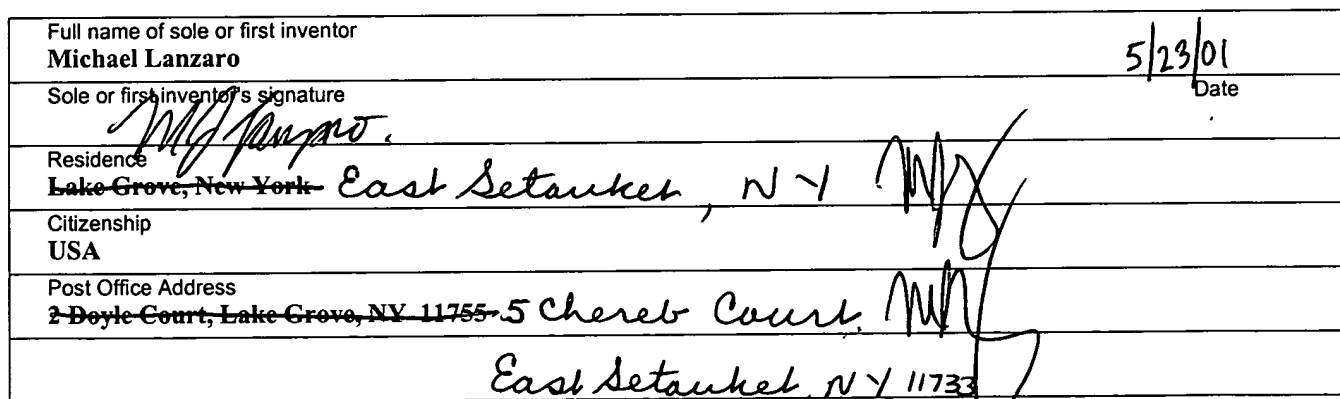 Full name of sole or first inventor
Michael Lanzaro
5/23/01
Date
Sole or first inventor's signature
MJ Lanzaro.
Residence
Lake Grove, New York East Setauket, NY MJL
Citizenship
USA
Post Office Address
2 Doyle Court, Lake Grove, NY 11755 5 Chereb Court. MJL
East Setauket, NY 11733